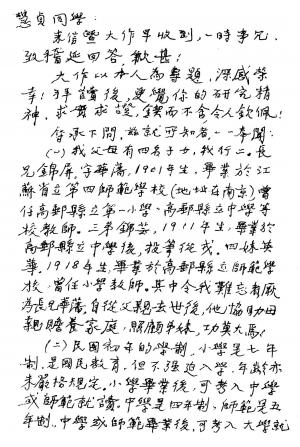 慧貞同學：
來信暨大作早收到，一時事冗，
致稽延回答，歉甚！
大作以本人為專題，深感榮
幸！拜讀後，更覺你的研究精
神，求實求證，鍥而不舍令人欽佩！
昝承下問，茲就所知者，一一奉聞：
(一)我父母有四名子女，我行二。長
兄錦屏，字華藩，1901年生，畢業於江
蘇省立第四師範學校(地址在南京)曾
任高郵縣立第一小學、高郵縣立中學等
校教師。三弟錦芸，1911年生，畢業於
高郵縣立中學後，投筆從戎。四妹英
華，1918年生，畢業於高郵縣立師範學
校，曾任小學教師。其中令我難忘者厥
為長兄華藩，自從父親去世後，他協助母
親贍養家庭，照顧弟妹，功莫大焉！
(二)民國初年的學制，小學是七年
制，是國民教育，但不強迫入學，年齡亦
未嚴格規定。小學畢業後，可考入中學
或師範就讀。中學是四年制，師範是五
年制。中學或師範畢業後，可考入大學就